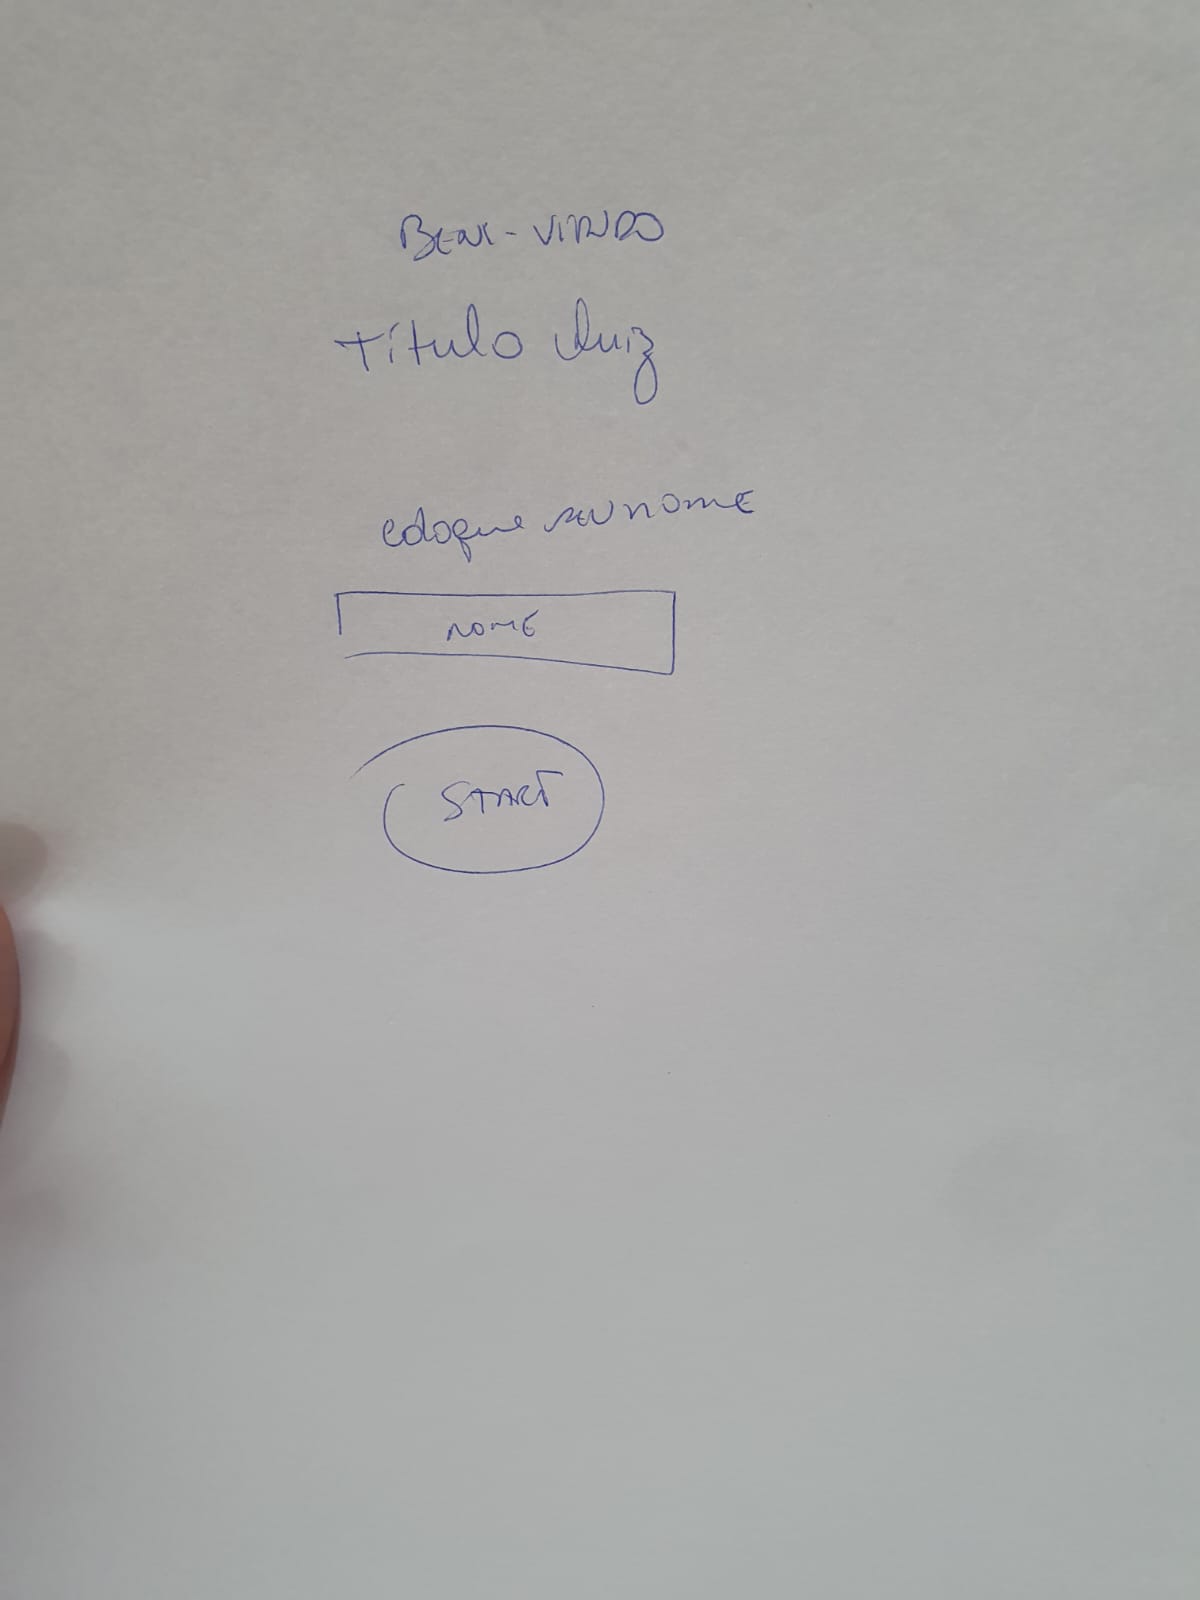 BEM-VINDO
Título Quiz
coloque seu nome
NOME
START